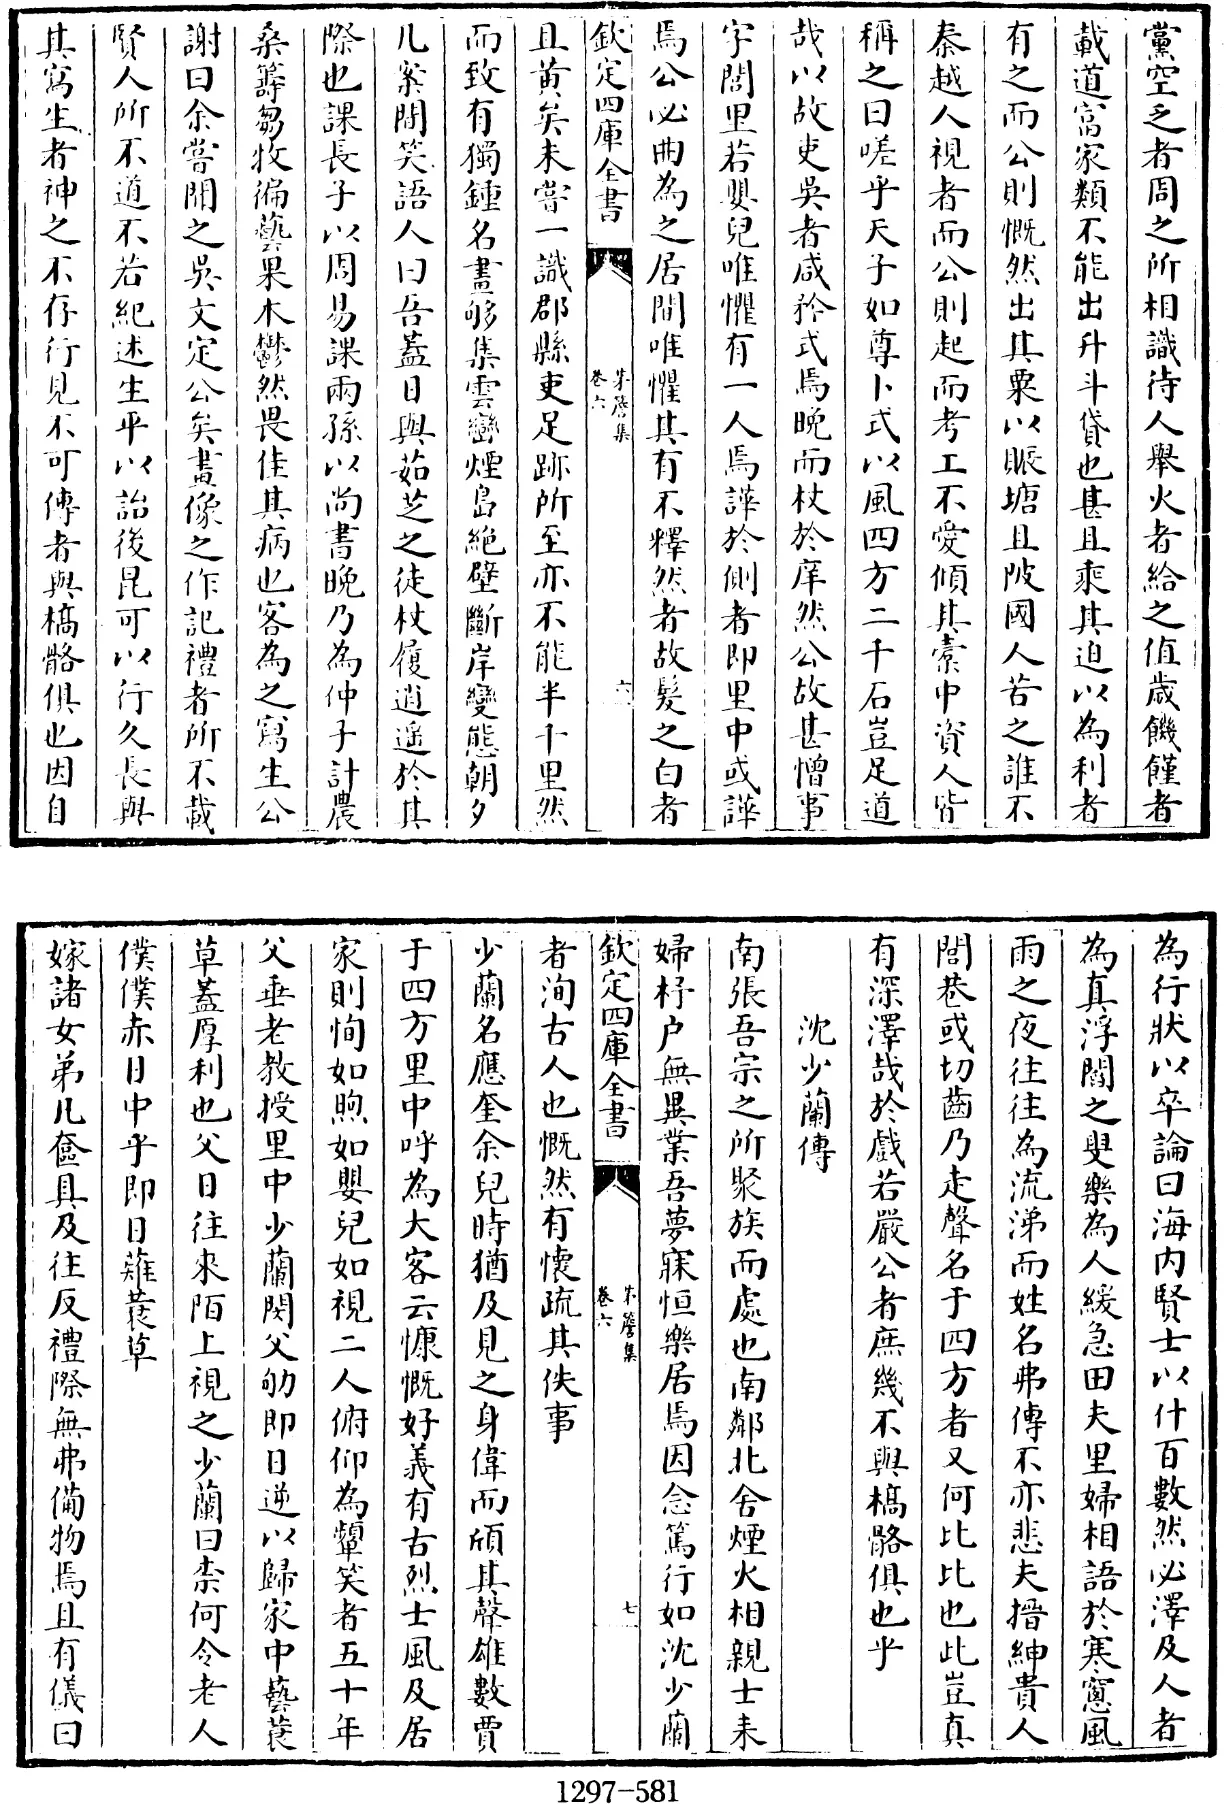 黨空乏者周之所相識待人舉火者給之值歲饑饉者
載道富家類不能出升斗貸也甚且乘其迫以為利者
有之而公則慨然出其粟以賑塘且陂國人苦之誰不
秦越人視者而公則起而考工不愛傾其橐中資人皆
稱之曰嗟乎天子如尊卜式以風四方二千石豈足道
哉以故吏吳者咸矜式焉晚而杖於庠然公故甚憎事
字閭里若嬰兒唯懼有一人焉譁於側者即里中或譁
焉公必曲為之居間唯懼其有不釋然者故髮之白者
欽定四庫全書
朱簷集
卷六
六
且黃矣未嘗一識郡縣吏足跡所至亦不能半千里然
而致有獨鍾名畫夠集雲巒煙島絕壁斷岸變態朝夕
几案間笑語人曰吾蓋日與茹芝之徒杖履逍遥於其
際也課長子以周易課兩孫以尚書晚乃為仲子計農
桑籌芻牧徧藝果木鬱然畏佳其病也客為之寫生公
謝曰余嘗聞之吳文定公矣畫像之作記禮者所不載
賢人所不道不若紀述生平以詒後昆可以行久長與
其寫生者神之不存行見不可傳者與槁骼俱也因自
為行狀以卒論曰海内賢士以什百數然必澤及人者
為真浮閻之叟樂為人緩急田夫里婦相語於寒窻風
雨之夜往往為流涕而姓名弗傳不亦悲夫搢紳貴人
閭巷或切齒乃走聲名于四方者又何比比也此豈真
有深澤哉於戲若嚴公者庶幾不與槁骼俱也乎
沈少蘭傳
南張吾宗之所聚族而處也南鄰北舍煙火相親士耒
婦杼户無異業吾夢寐恒樂居焉因念篤行如沈少蘭
欽定四庫全書
朱簷集
卷六
七
者洵古人也慨然有懷疏其佚事
少蘭名應奎余兒時猶及見之身偉而頎其聲雄數賈
于四方里中呼為大客云慷慨好義有古烈士風及居
家則恂如煦如嬰兒如視二人俯仰為顰笑者五十年
父垂老教授里中少蘭閔父劬即日逆以歸家中藝菉
草蓋厚利也父日往來陌上視之少蘭曰柰何令老人
僕僕赤日中乎即日薙菉草
嫁諸女弟凡奩具及往反禮際無弗備物焉且有儀曰
1297-581